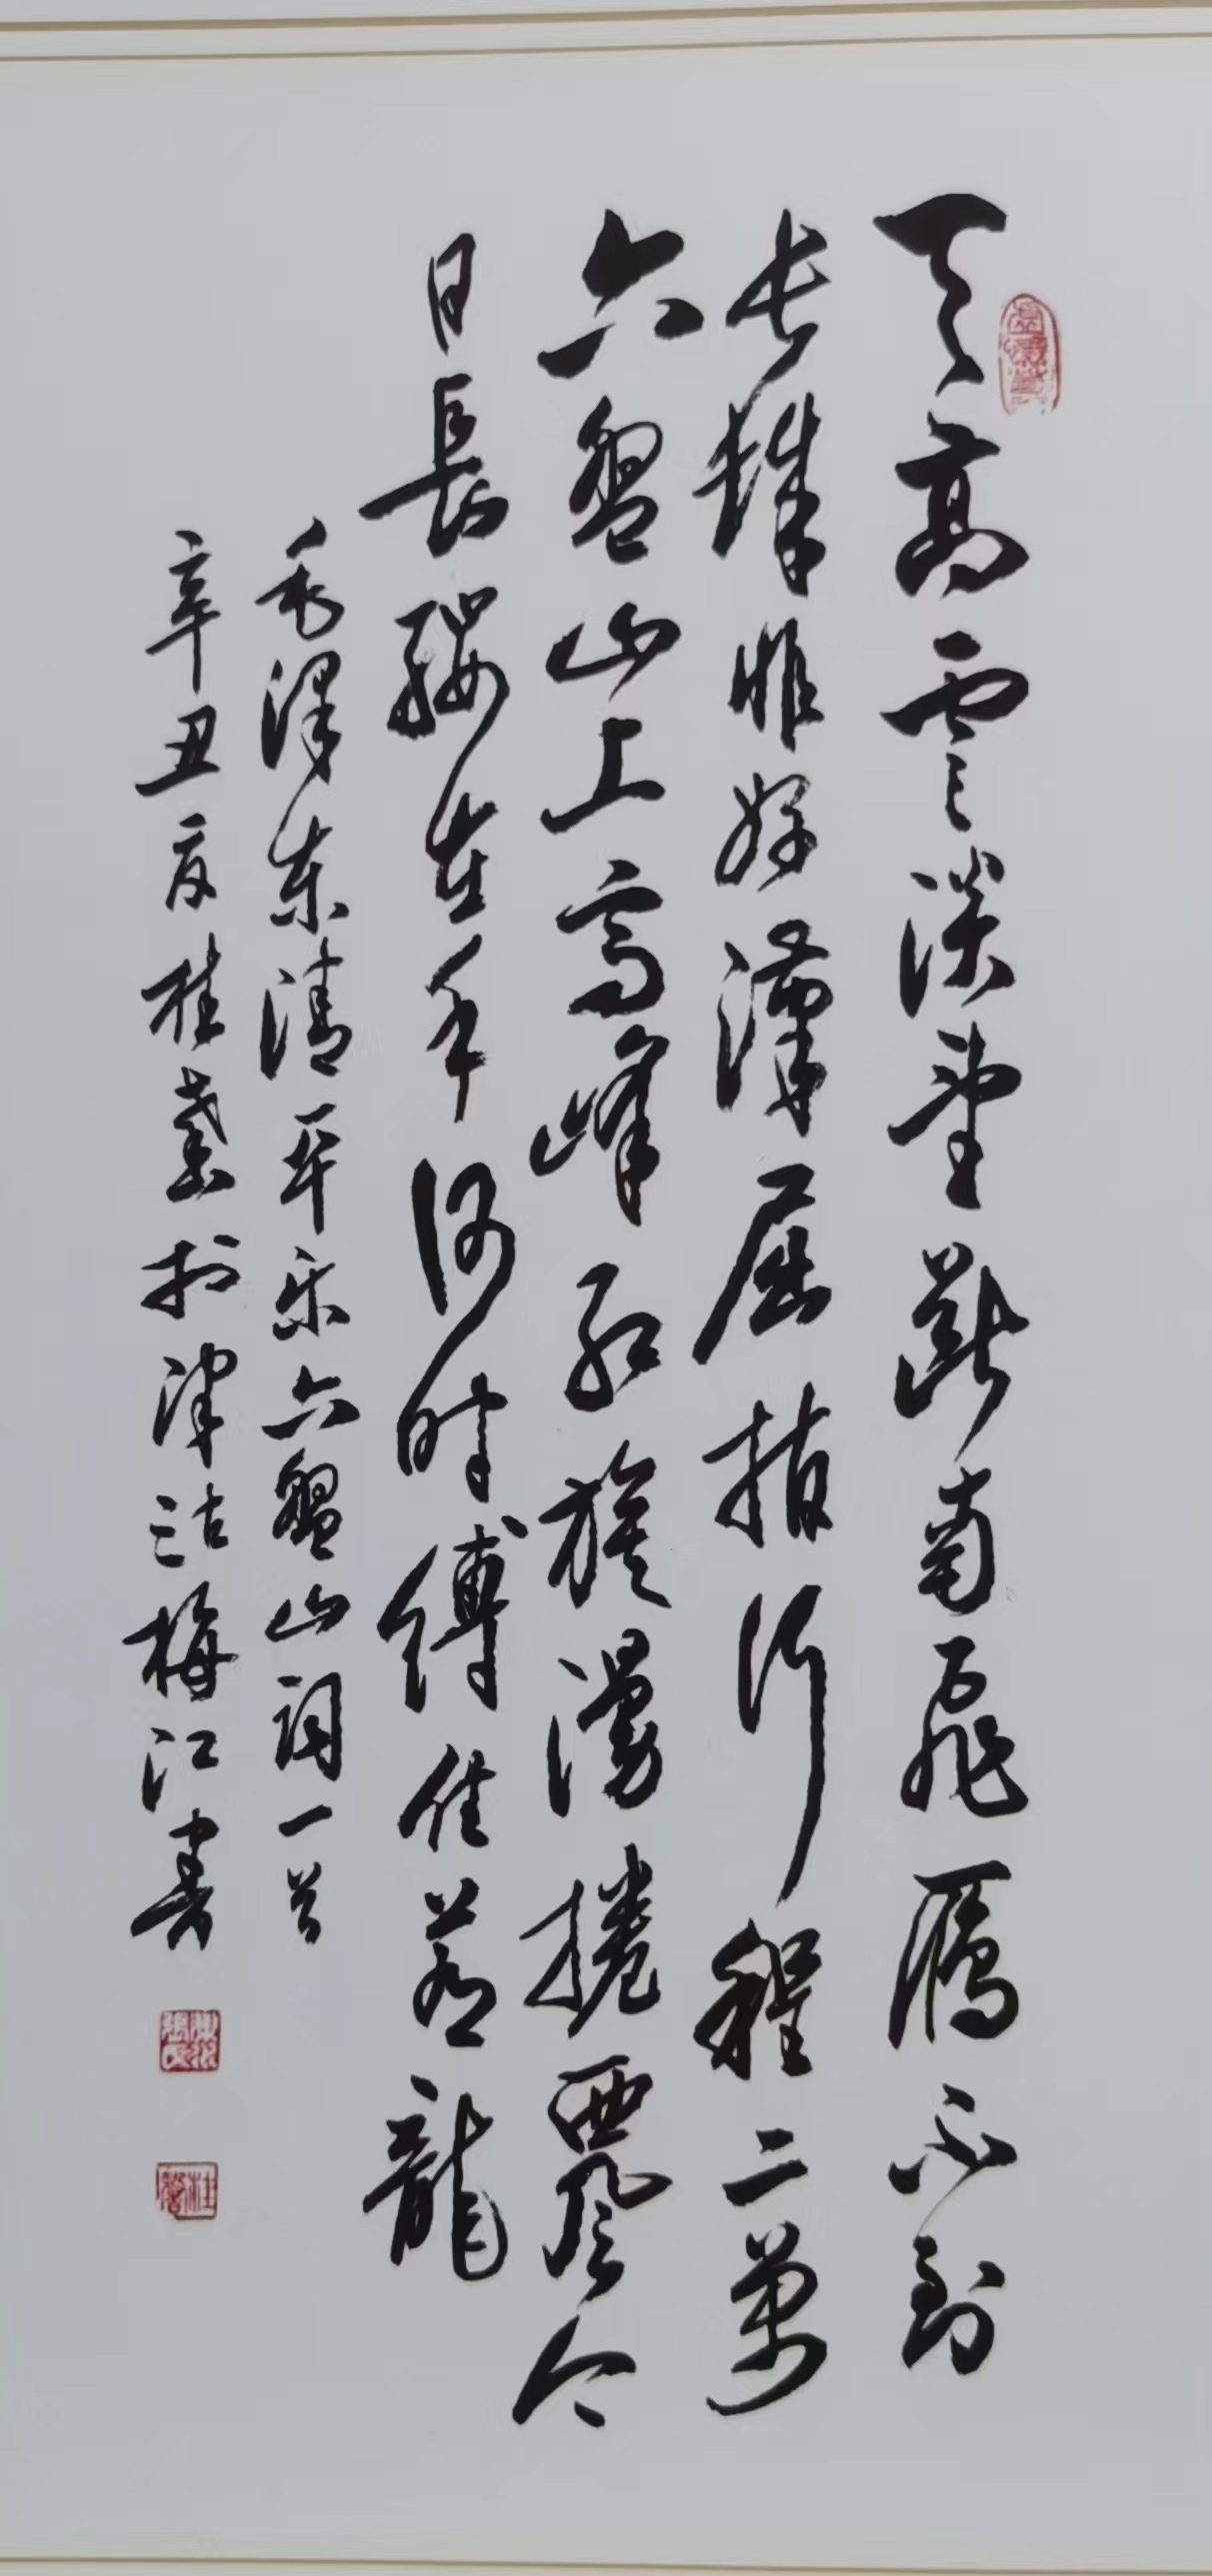 天高雲淡望斷南飛鴈不到
长城非好漢屈指行程二萬
六盤山上高峰红旗漫捲西風今
日長纓在手何时縛住蒼龍
毛澤東清平乐六盤山詞一首
辛丑夏桂馨扵津沽梅江書